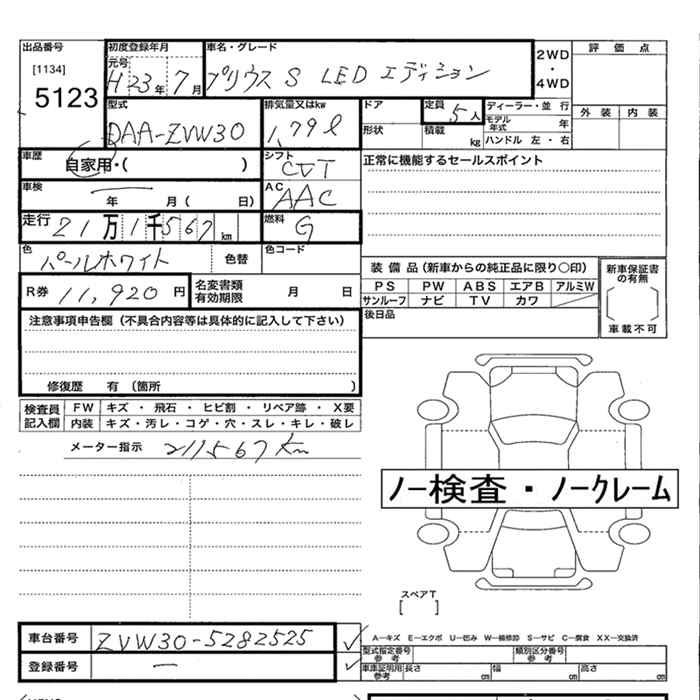 出品番号 初度登録年月 車名・グレード 2WD・4WD 評価点
[1134] 元号
5123 H23年7月 プリウス S LED エディション
外装 内装
型式 排気量又はkw ドア 定員 5人 ディーラー・並行
DAA-ZVW30 1,79ℓ 形状 積載 kg モデル年式 年
ハンドル 左・右
車歴 自家用・( ) シフト CVT 正常に機能するセールスポイント
車検 年 月( 日) AC AAC
走行 21万1千567km 燃料 G
色 パールホワイト 色替 色コード
装備品(新車からの純正品に限り〇印) 新車保証書の有無
R券 11,920円 名変書類有効期限 月 日 PS PW ABS エアB アルミW
サンルーフ ナビ TV カワ
注意事項申告欄(不具合内容等は具体的に記入して下さい) 後日品 車載不可
修復歴 有 (箇所 )
検査員記入欄 FW キズ・飛石・ヒビ割・リペア跡・X要
内装 キズ・汚レ・コゲ・穴・スレ・キレ・破レ
メーター指示 211567km
ノー検査・ノークレーム
スペアT
[ ]
車台番号 ZVW30-5282525 A―キズ E―エクボ U―凹み W―補修跡 S―サビ C―腐食 XX―交換済
登録番号 ー 型式指定番号 参考 類別区分番号 参考
車庫証明用 参考 長さ cm 幅 cm 高さ cm